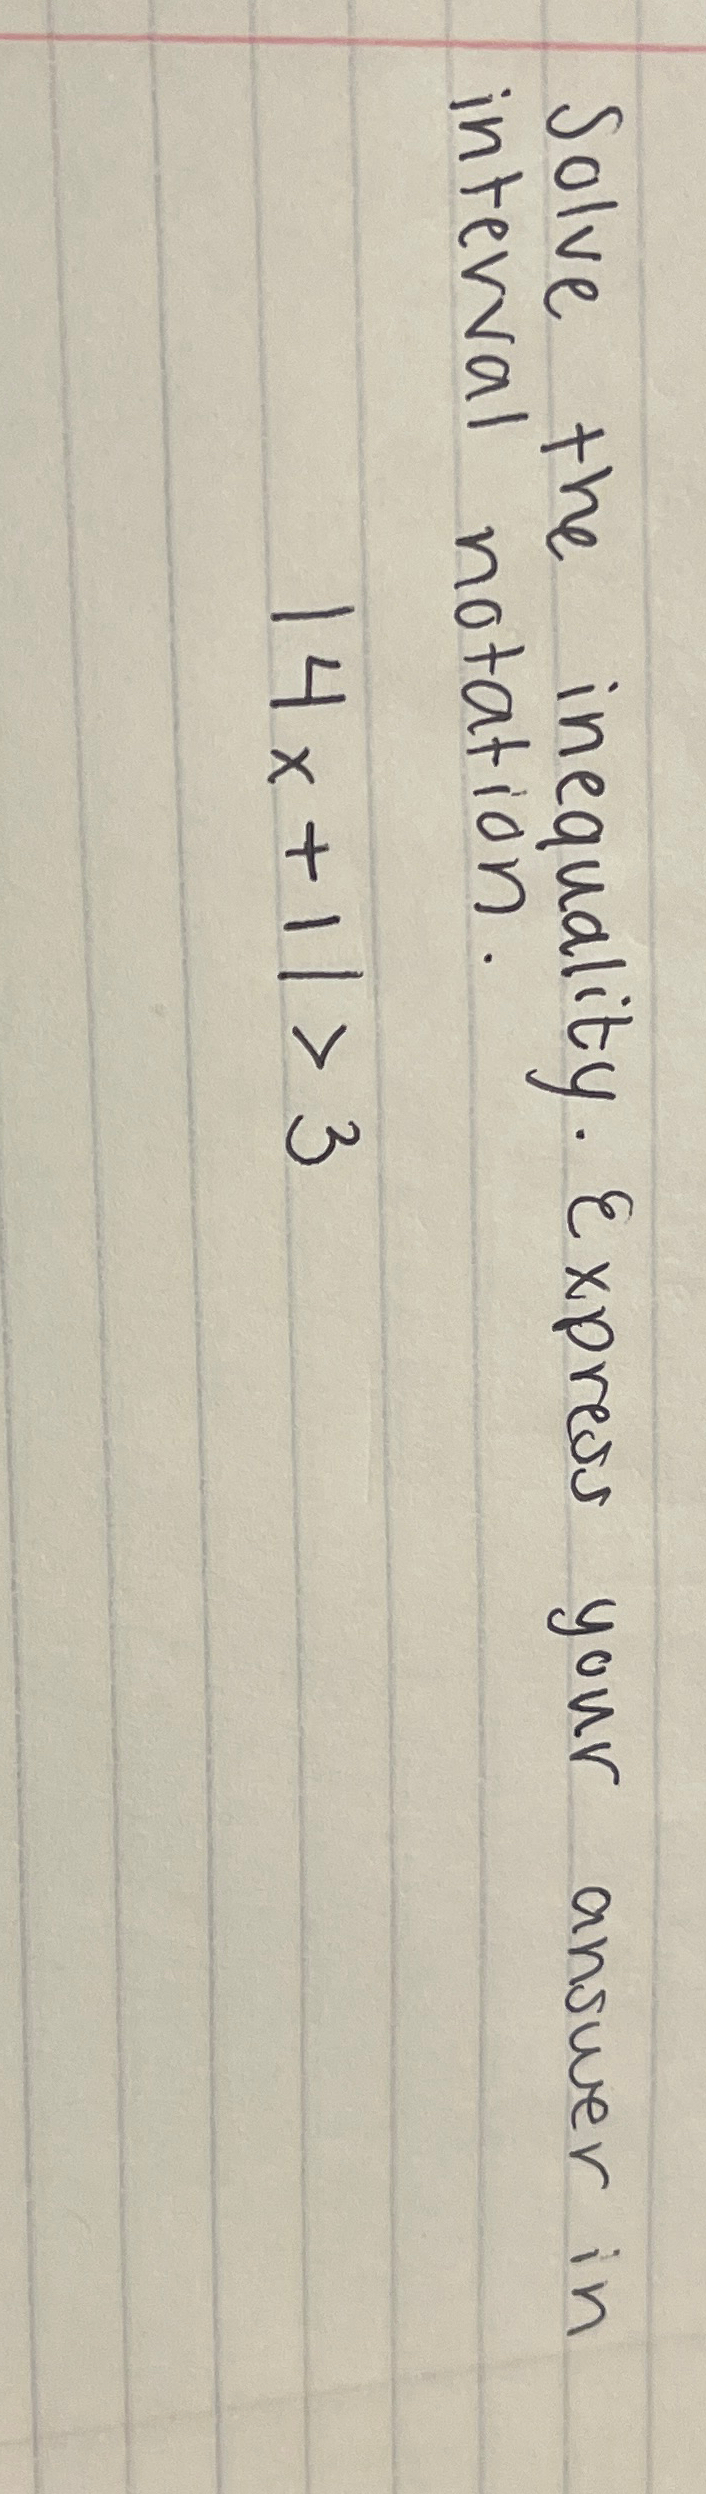 Solve the inequality. Express your answer in
interval notation.
|4x+1|>3